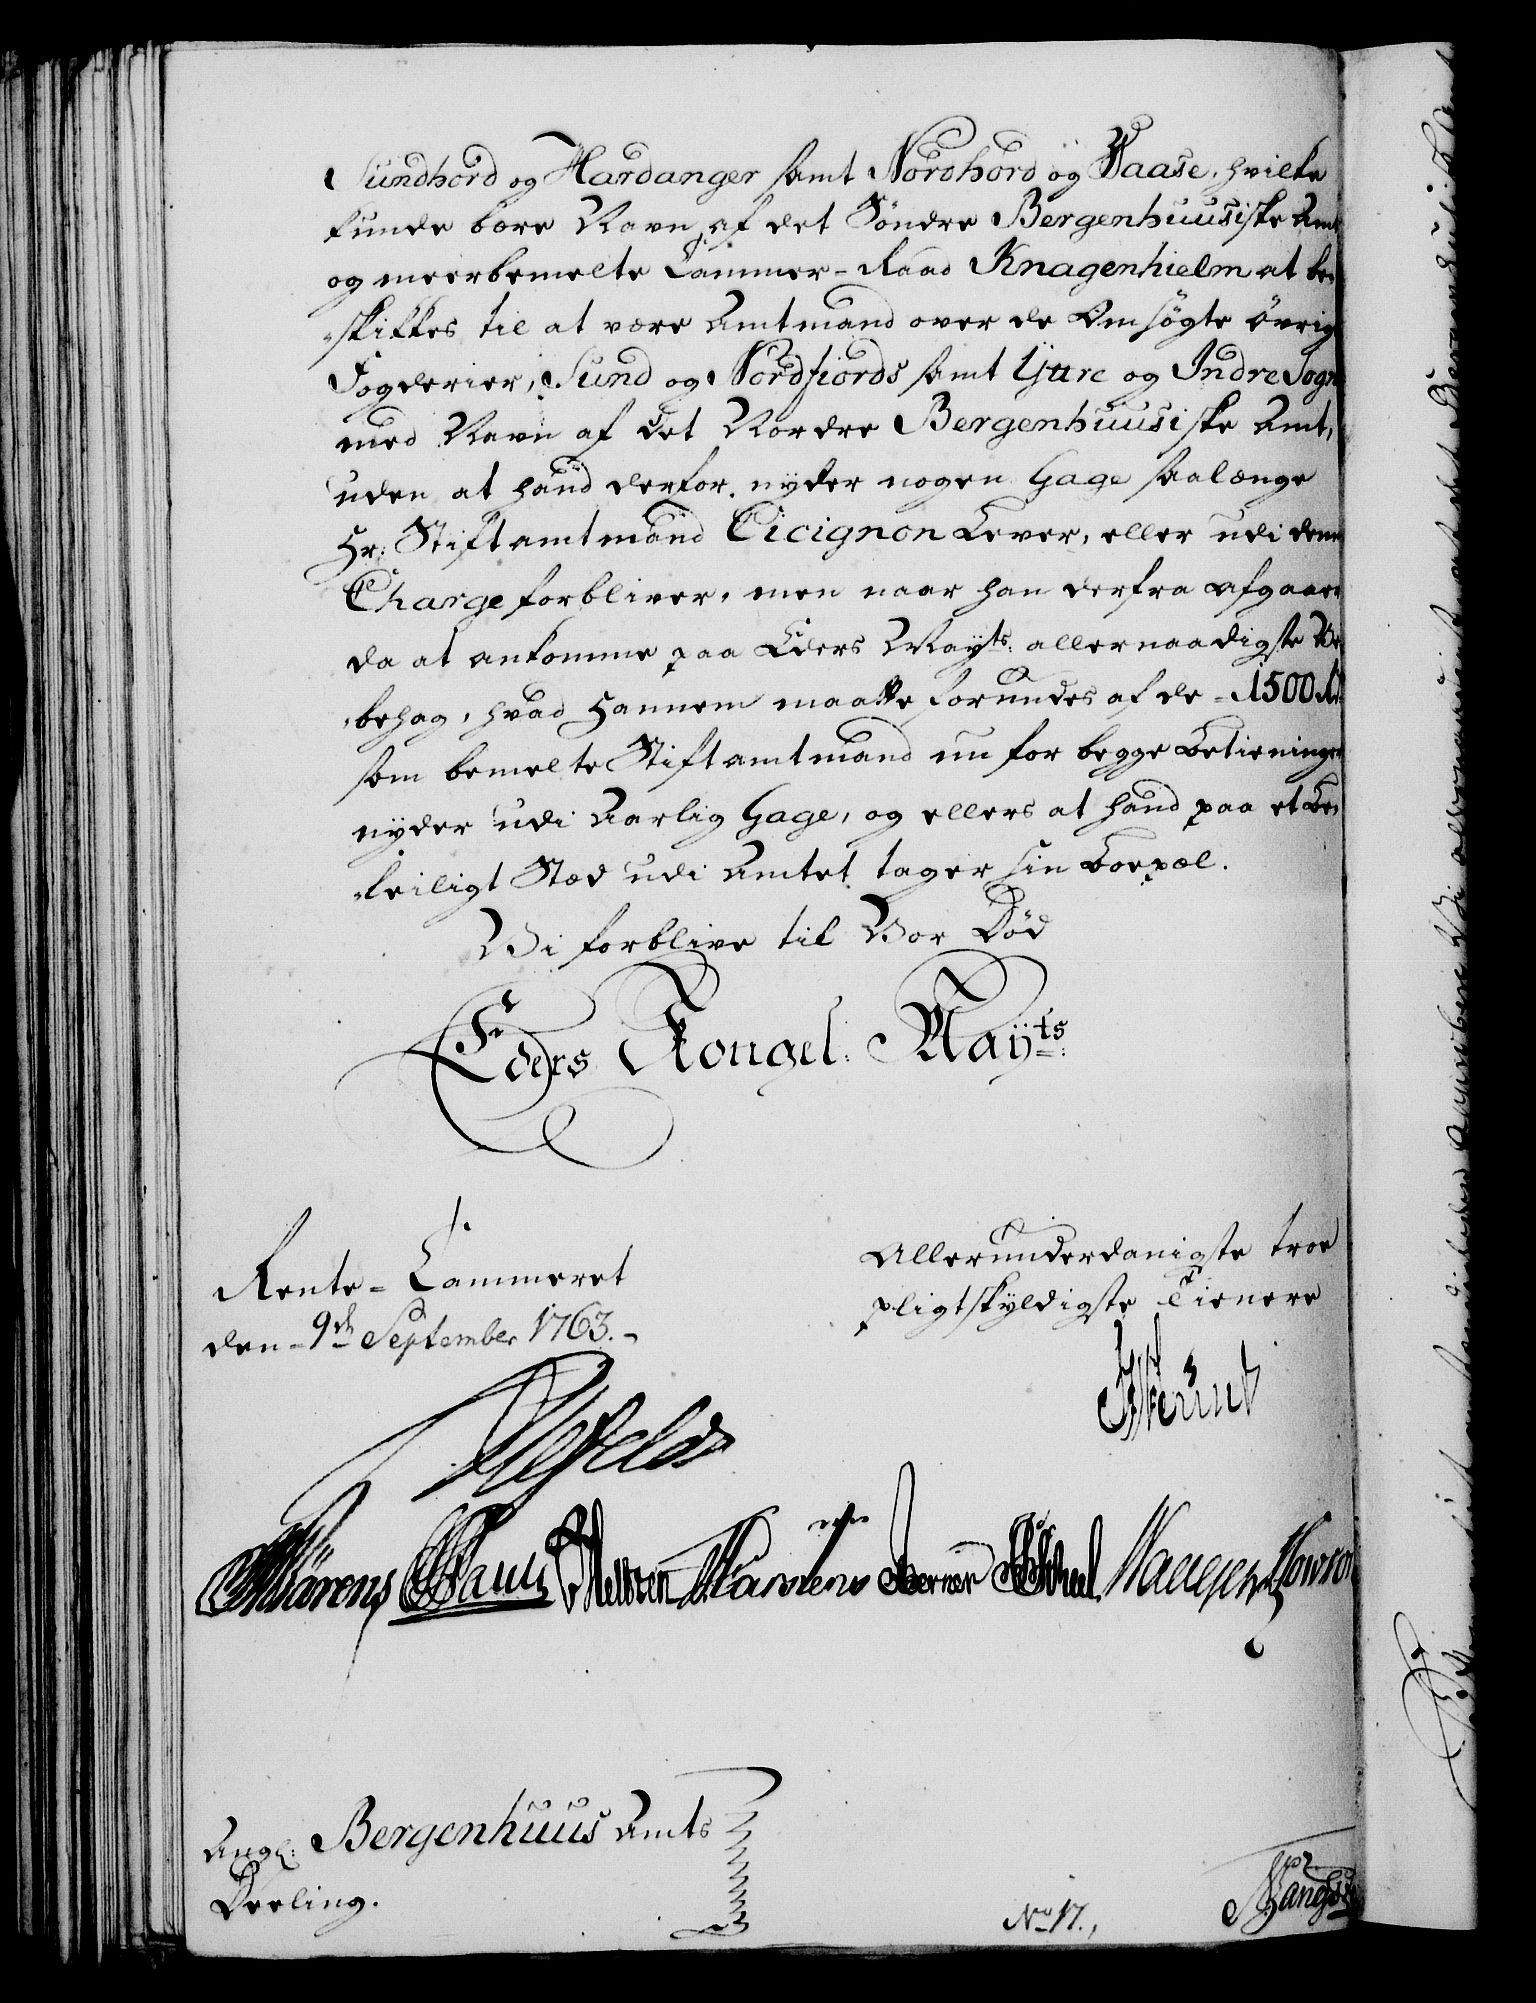 Sundhord og Hardanger samt Nordhord og Vaase, hvilke
kunde bære Navn af det Söndre Bergenhuusiske Amt
og meerbemelte Cammer-Raad Knagenhielm at be-
-skikkes til at være Amtmand over de Ansögte övrige
Fogderier, Sund og Nordfiords samt Yttre og Indre Sogn
med Navn af det Nordre Bergenhuusiske Amt,
uden at hand derfor nyder nogen Gage saalænge
Hr: Stiftamtmand Cicignon Lever, eller udi denne
Charge forbliver, men naar han derfra afgaaer
da at ankomme paa Eders Mayts: allernaadigste Be-
-behag, hvad Hannem maatte forundes af de - 1500 Rd
som bemelte Stiftamtmand nu for begge Betieninger
nyder udi Aarlig Gage, og ellers at hand paa et be-
-leiligt Stæd udi Amtet tager sin Boepæl.
Vi forblive til Vor Död
Eders Kongel: Mayts:
Rente-Cammeret
den 9de September 1763.
Allerunderdanigste troe
pligtskyldigste Tienere
Ahlefeldt
Angl: Bergenhuus Amts
Deeling.
No 17.